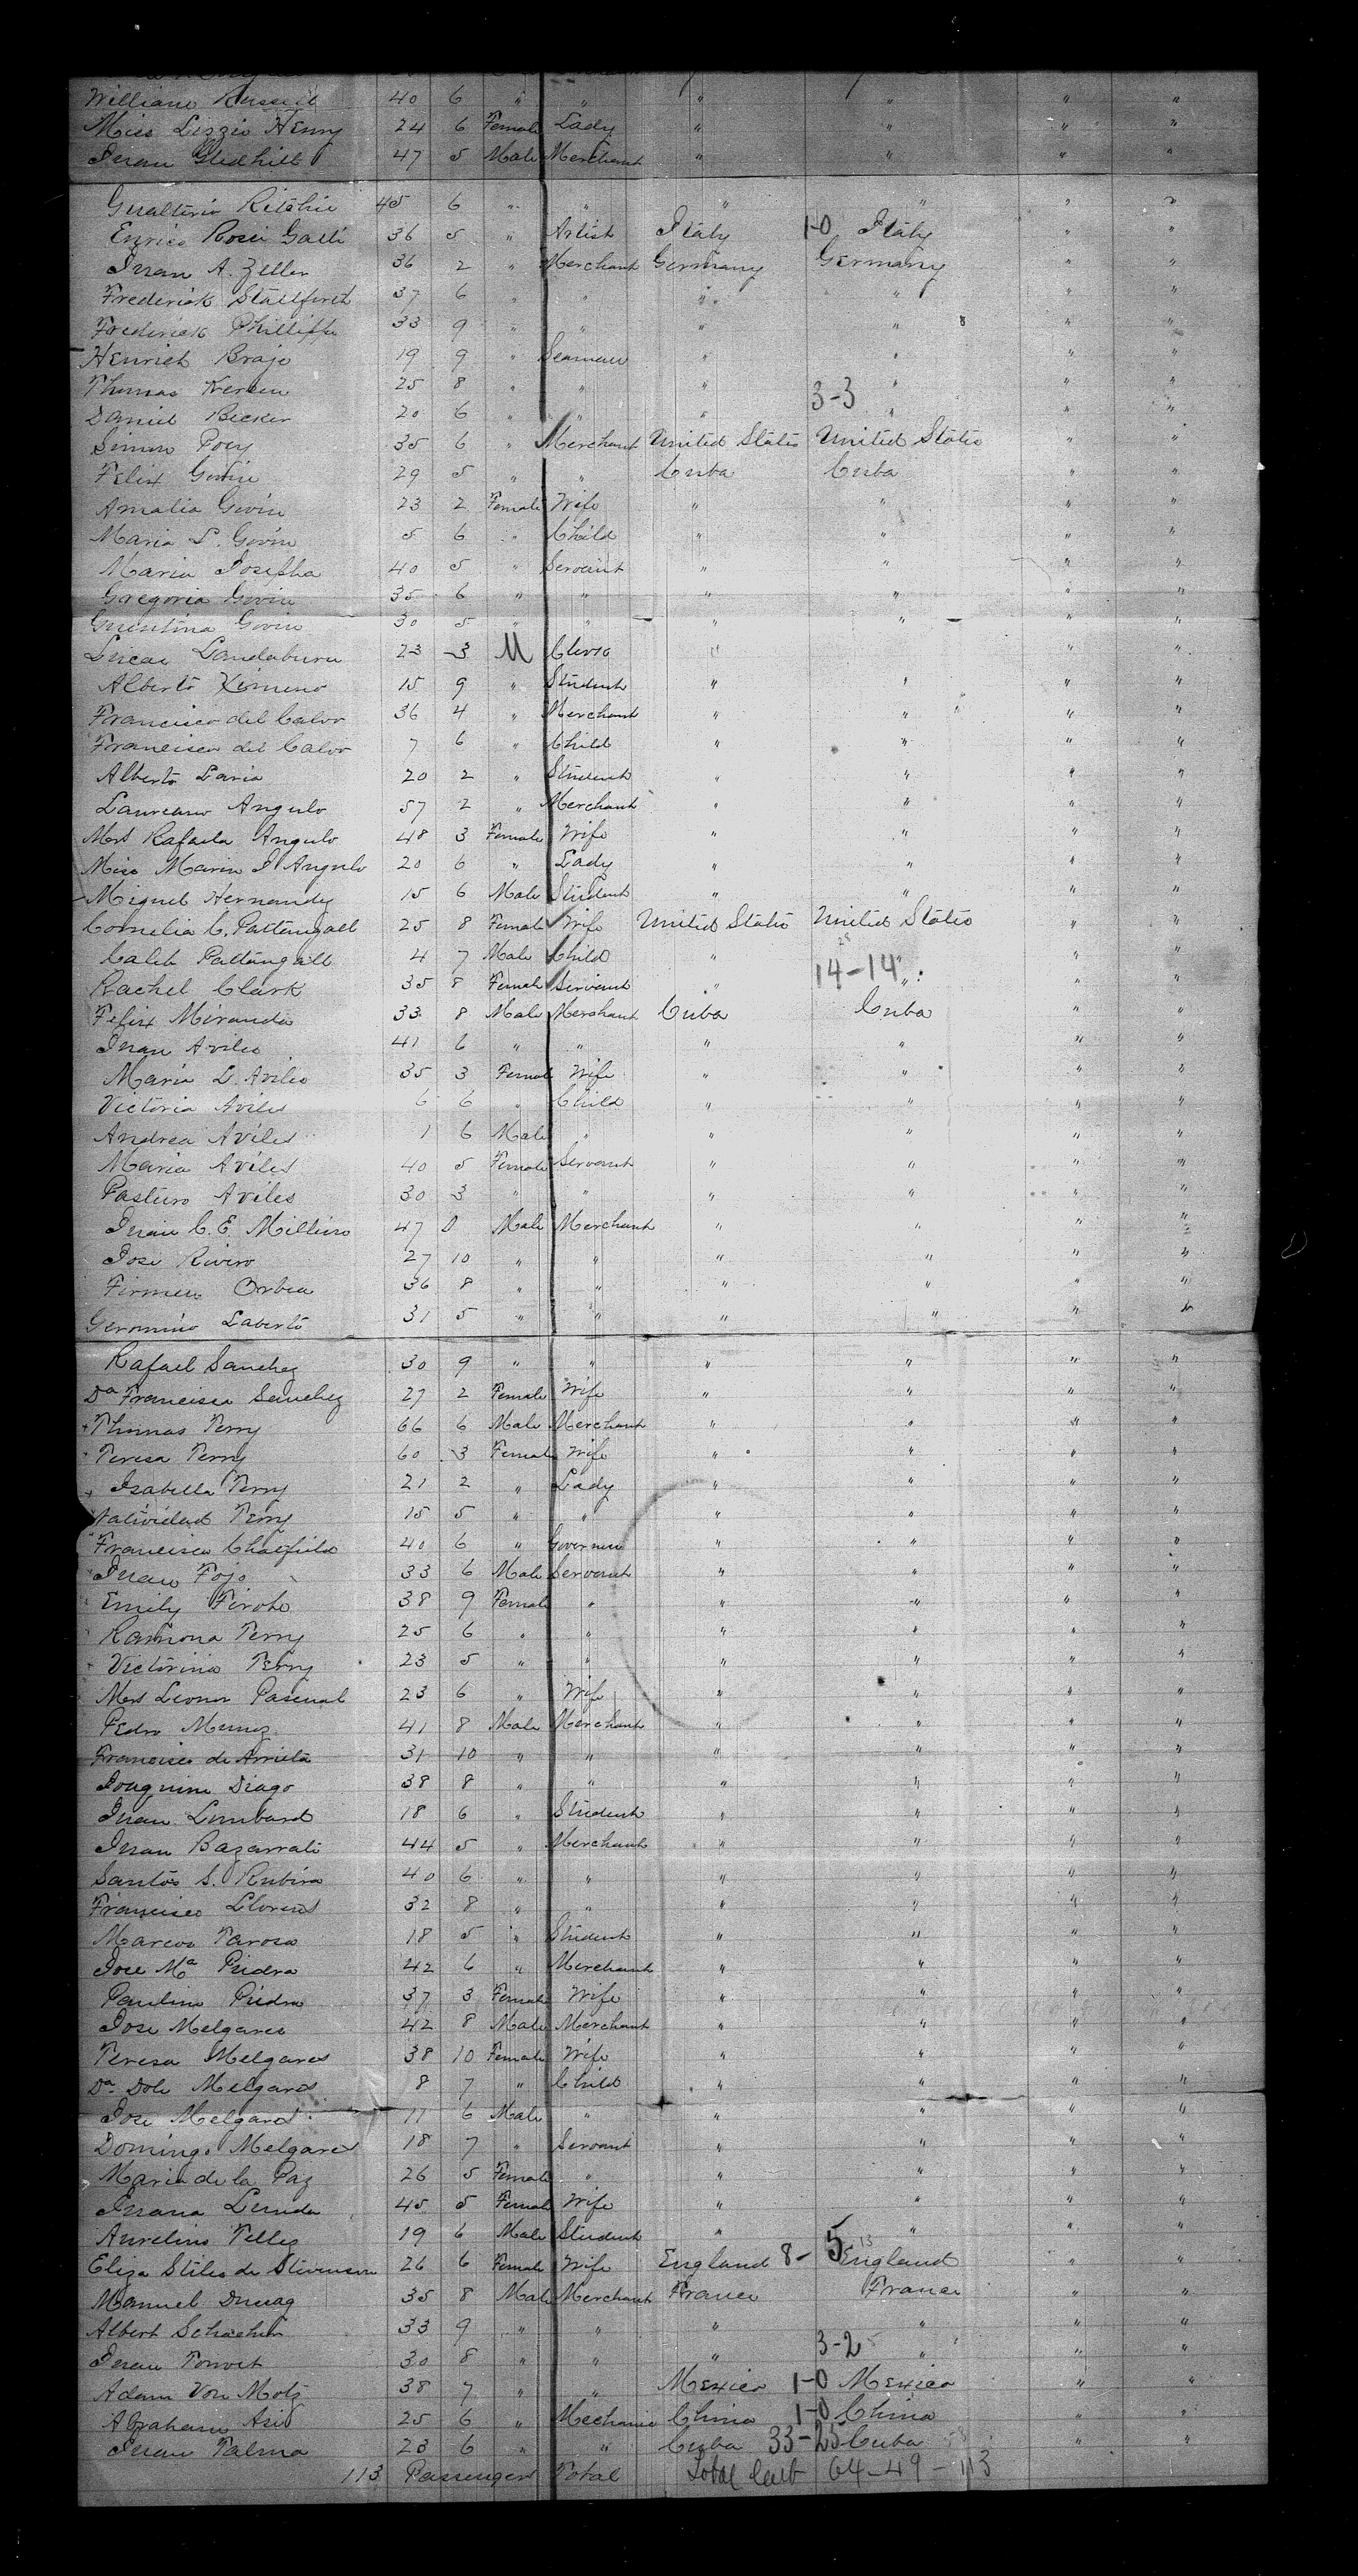 William Russell 40 6 " " " " " "
Miss Lizzie Henry 24 6 Female Lady " " " "
Juan Gledhill 47 5 Male Merchant " " " "
Gualterio Ritchie 45 6 " " " " " "
Enrico Rossi Galli 36 5 " Artist Italy 1-0 Italy " "
Juan A. Zeller 36 2 " Merchant Germany Germany " "
Frederick Stallforth 37 6 " " " " " "
Frederick Phillipps 33 9 " " " " " "
Henrich Braje 19 9 " Seaman " " " "
Thomas 25 8 " " " 3-3 " " "
Daniel Becker 20 6 " " " " " "
Simon Poey 35 6 " Merchant United States United States " "
Felix Govin 29 5 " " Cuba Cuba " "
Amalia Govin 23 2 Female Wife " " " "
Maria L. Govin 5 6 " Child " " " "
Maria Josefha 40 5 " Servant " " " "
Gregoria Govin 35 6 " " " " " "
Govin 30 5 " " " " " "
Lucas Landaburu 23 3 M Clerk " " " "
Alberto Ximeno 15 9 " Student " " " "
Francisco del Calvo 36 4 " Merchant " " " "
Francisco del Calvo 7 6 " Child " " " "
Alberto Laria 20 2 " Student " " " "
Laureano Angulo 57 2 " Merchant " " " "
Mrs Rafaela Angulo 48 3 Female Wife " " " "
Miss Maria J Angulo 20 6 " Lady " " " "
Miguel Hernandez 15 6 Male Student " " " "
Cornelia C. Pattangall 25 8 Female Wife United States United States " "
Caleb Pattangall 4 7 Male Child " 14-14 " " "
Rachel Clark 35 8 Female Servant " " " "
Felix Miranda 33 8 Male Merchant Cuba Cuba " "
Juan Aviles 41 6 " " " " " "
Maria L. Aviles 35 3 Female Wife " " " "
Victoria Aviles 6 6 " Child " " " "
Andrea Aviles 1 6 Male " " " " "
Maria Aviles 40 5 Female Servant " " " "
Pasturo Aviles 30 3 " " " " " "
Juan C. E. 47 Male Merchant " " " "
Jose Rivero 27 10 " " " " " "
Firmin Orbea 36 8 " " " " " "
Geronimo Laberto 31 5 " " " " " "
Rafael Sanchez 30 9 " " " " " "
Da Francisca Sanchez 27 2 Female Wife " " " "
Thomas Terry 66 6 Male Merchant " " " "
Teresa Terry 60 3 Female Wife " " " "
Isabella Terry 21 2 " Lady " " " "
Natividad Terry 15 5 " " " " " "
Francisca Chatfield 40 6 " Governess " " " "
Juan Fojo 33 6 Male Servant " " " "
Emily 38 9 Female " " " " "
Ramona Terry 25 6 " " " " " "
Victorina Terry 23 5 " " " " " "
Mrs Leonor Pascual 23 6 " Wife " " " "
Pedro Munoz 41 8 Male Merchant " " " "
Francisco de Arrieta 31 10 " " " " " "
Joaquin Diago 38 8 " " " " " "
Juan Lombard 18 6 " Student " " " "
Juan Bazarrati 44 5 " Merchant " " " "
Santos S. Rubira 40 6 " " " " " "
Francisco Llorens 32 8 " " " " " "
Marcos Tarosa 18 5 " Student " " " "
Jose Ma Piedra 42 6 " Merchant " " " "
Paulina Piedra 37 3 Female Wife " " " "
Jose Melgares 42 8 Male Merchant " " " "
Teresa Melgares 38 10 Female Wife " " " "
Da. Dole Melgares 8 7 " Child " " " "
Jose Melgares 11 6 Male " " " " "
Domingo Melgares 18 7 " Servant " " " "
Maria de la Paz 26 5 Female " " " " "
Juana 45 5 Female Wife " " " "
Aurelino Tellez 19 6 Male Student " " " "
Eliza Stiles de Stevenson 26 6 Female Wife England 8-5 England " "
Manuel 35 8 Male Merchant France France " "
Albert 33 9 " " " " " "
Juan 30 8 " " " 3-2 " " "
Adam Von Motz 38 7 " " Mexico 1-0 Mexico " "
Abraham Asid 25 6 " Mechanic China 1-0 China " "
Juan Palma 23 6 " " Cuba 33-25 Cuba " "
113 Passengers Total Total 64-49-113